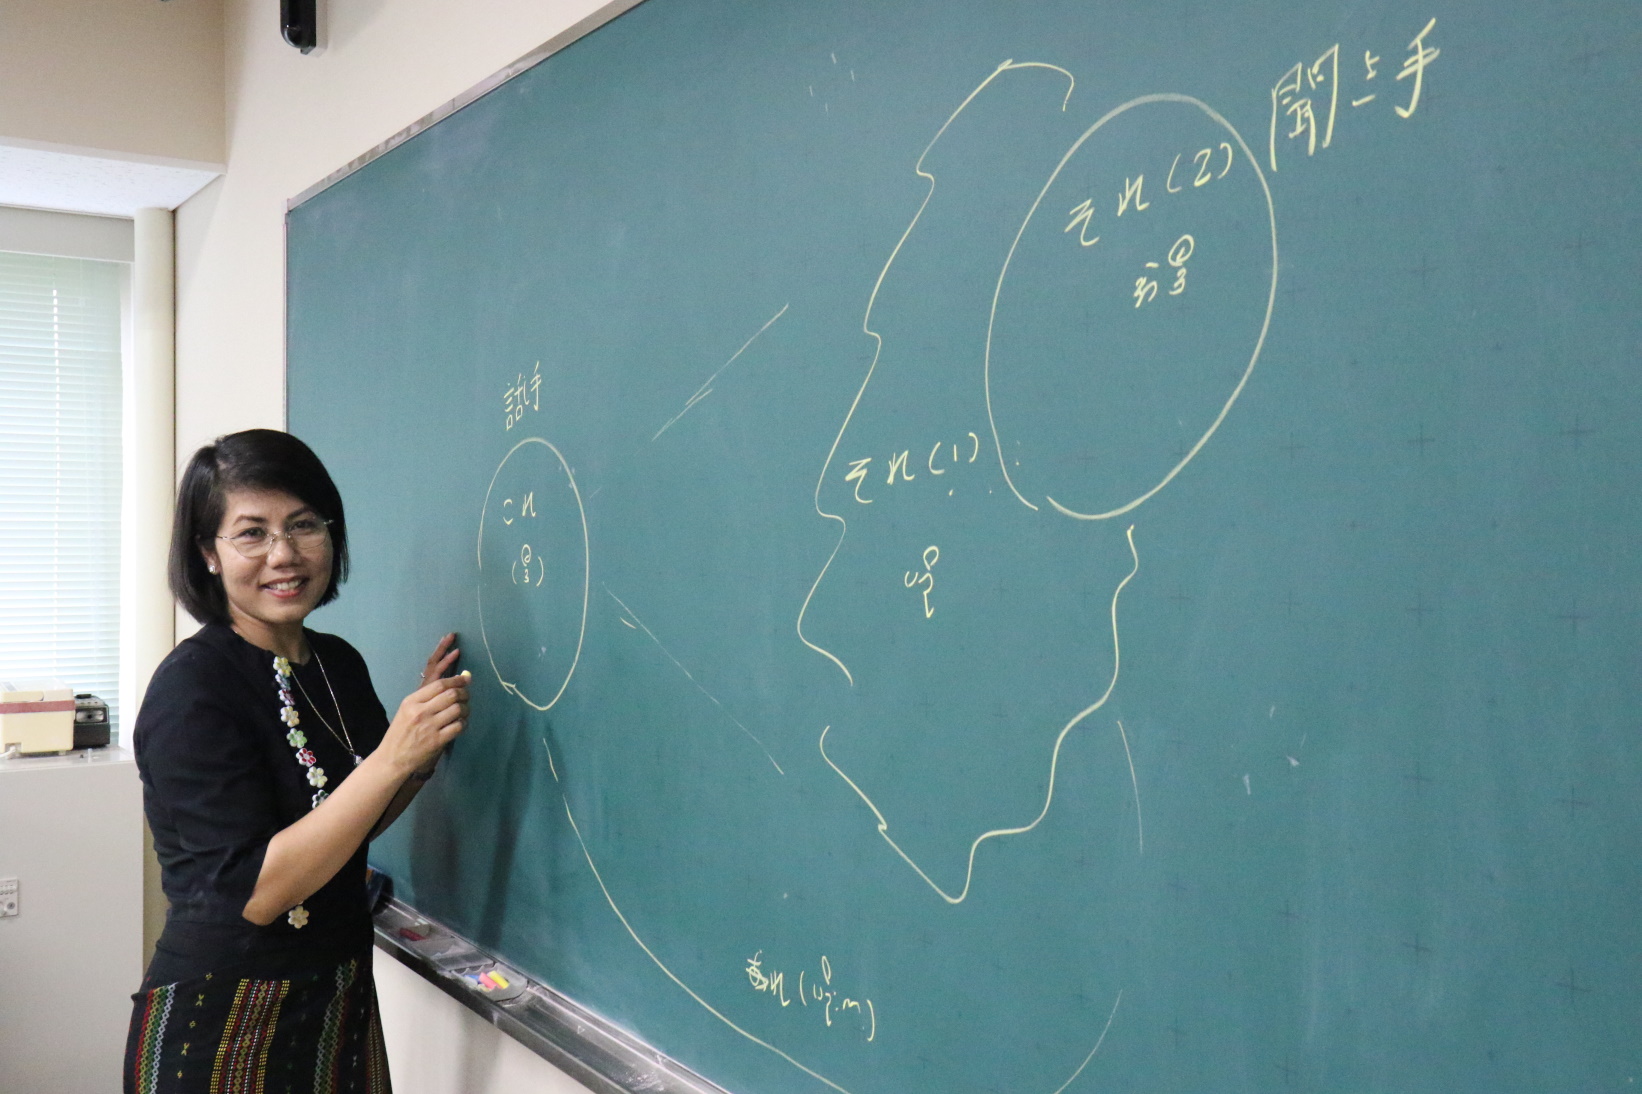 聞き手
それ(2)
အဲဒီ
話し手
それ(1)
これ
ဟို
(ဒီ)
あれ